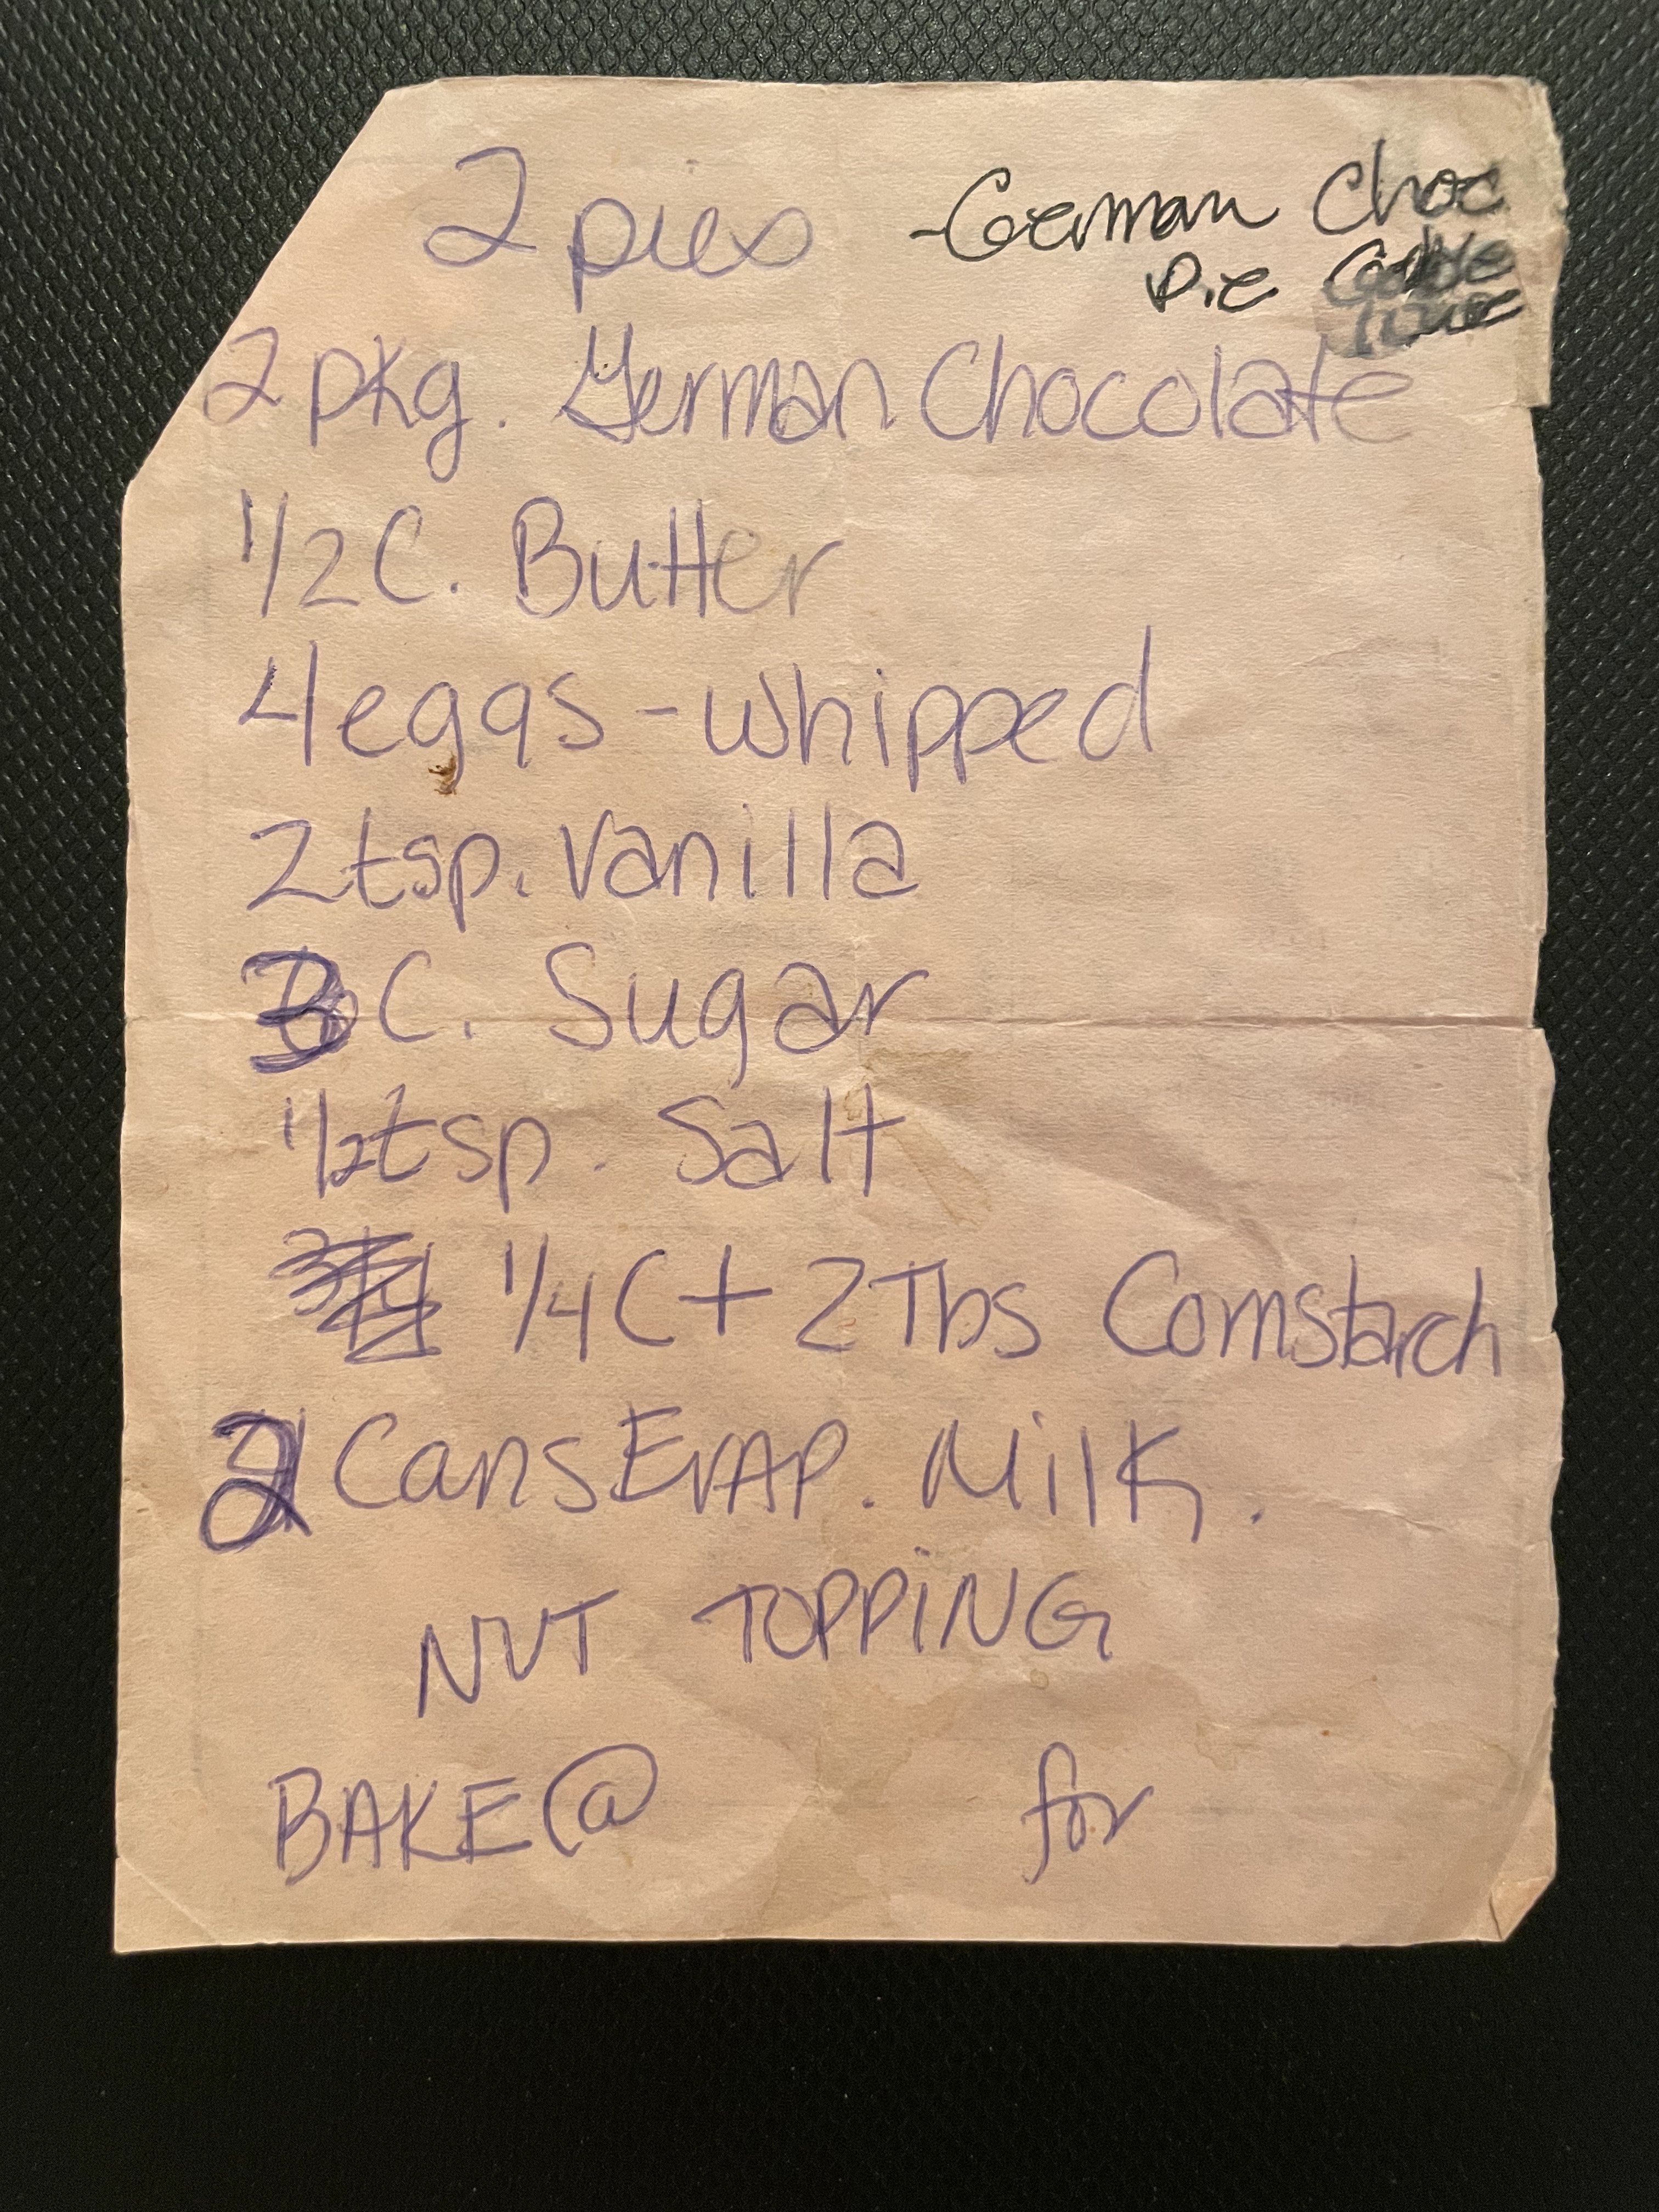 2 pies - German Choc
Pie
2 pkg. German Chocolate
1/2 C. Butter
4 eggs - whipped
2 tsp. vanilla
3 C. Sugar
1/2 tsp. Salt
1/4 C + 2 Tbs Cornstarch
2 Cans EvAP. Milk.
NUT TOPPiNG
BAKE @ for